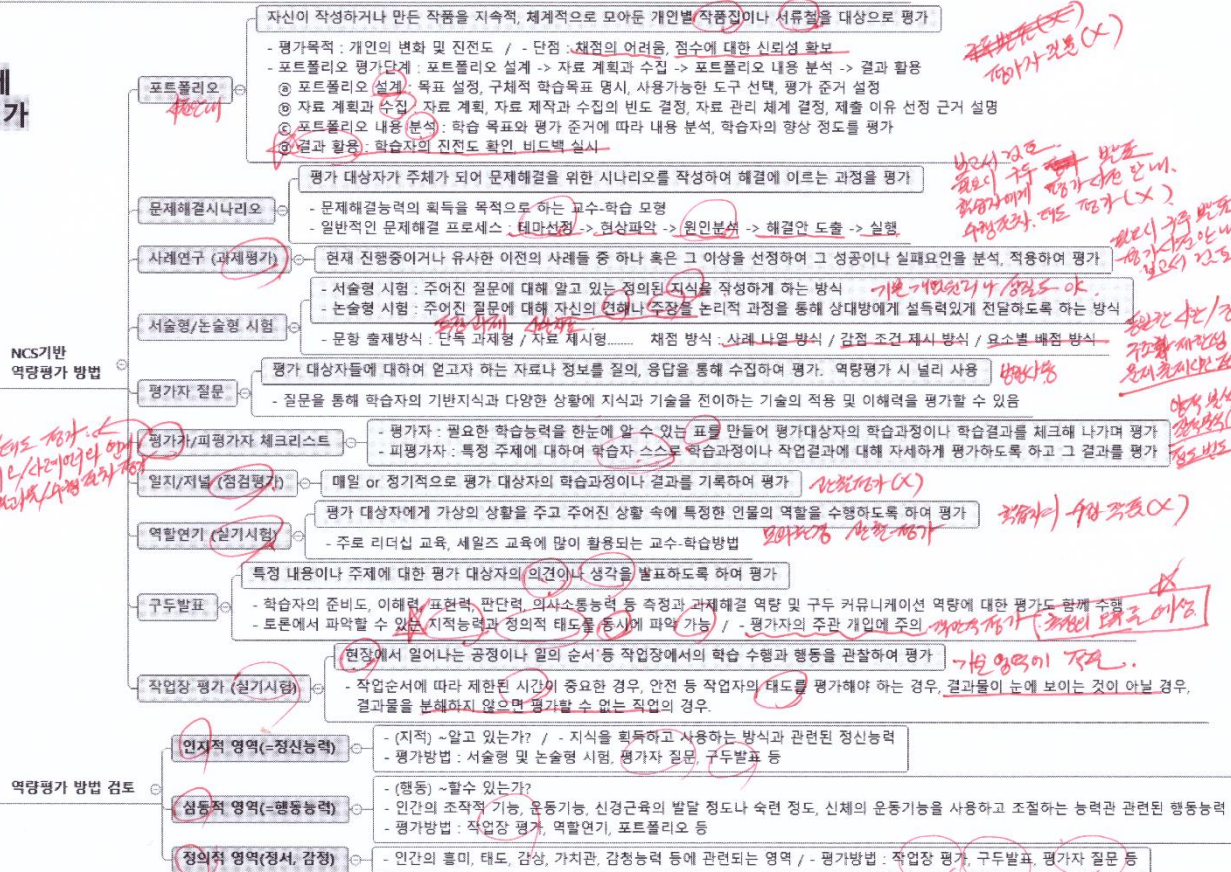 가
포트폴리오
자신이 작성하거나 만든 작품을 지속적, 체계적으로 모아둔 개인별 작품집이나 서류철을 대상으로 평가
- 평가목적 : 개인의 변화 및 진전도 / - 단점 : 채점의 어려움, 점수에 대한 신뢰성 확보
- 포트폴리오 평가단계 : 포트폴리오 설계 -> 자료 계획과 수집 -> 포트폴리오 내용 분석 -> 결과 활용
ⓐ 포트폴리오 설계 : 목표 설정, 구체적 학습목표 명시, 사용가능한 도구 선택, 평가 준거 설정
ⓑ 자료 계획과 수집 : 자료 계획, 자료 제작과 수집의 빈도 결정, 자료 관리 체계 결정, 제출 이유 선정 근거 설명
ⓒ 포트폴리오 내용 분석 : 학습 목표와 평가 준거에 따라 내용 분석, 학습자의 향상 정도를 평가
ⓓ 결과 활용 : 학습자의 진전도 확인, 비드백 실시
평가자 질문(X)
문제해결시나리오
평가 대상자가 주체가 되어 문제해결을 위한 시나리오를 작성하여 해결에 이르는 과정을 평가
- 문제해결능력의 획득을 목적으로 하는 교수-학습 모형
- 일반적인 문제해결 프로세스 : 테마선정 -> 현상파악 -> 원인분석 -> 해결안 도출 -> 실행
사례연구 (과제평가)
현재 진행중이거나 유사한 이전의 사례들 중 하나 혹은 그 이상을 선정하여 그 성공이나 실패요인을 분석, 적용하여 평가
서술형/논술형 시험
- 서술형 시험 : 주어진 질문에 대해 알고 있는 정의된 지식을 작성하게 하는 방식
- 논술형 시험 : 주어진 질문에 대해 자신의 견해나 주장을 논리적 과정을 통해 상대방에게 설득력있게 전달하도록 하는 방식
- 문항 출제방식 : 단독 과제형 / 자료 제시형....... 채점 방식 : 사례 나열 방식 / 감점 조건 제시 방식 / 요소별 배점 방식
NCS기반
역량평가 방법
평가자 질문
평가 대상자들에 대하여 얻고자 하는 자료나 정보를 질의, 응답을 통해 수집하여 평가. 역량평가 시 널리 사용
- 질문을 통해 학습자의 기반지식과 다양한 상황에 지식과 기술을 전이하는 기술의 적용 및 이해력을 평가할 수 있음
평가자/피평가자 체크리스트
- 평가자 : 필요한 학습능력을 한눈에 알 수 있는 표를 만들어 평가대상자의 학습과정이나 학습결과를 체크해 나가며 평가
- 피평가자 : 특정 주제에 대하여 학습자 스스로 학습과정이나 작업결과에 대해 자세하게 평가하도록 하고 그 결과를 평가
일지/저널 (점검평가)
매일 or 정기적으로 평가 대상자의 학습과정이나 결과를 기록하여 평가
관찰평가(X)
역할연기 (실기시험)
평가 대상자에게 가상의 상황을 주고 주어진 상황 속에 특정한 인물의 역할을 수행하도록 하여 평가
- 주로 리더십 교육, 세일즈 교육에 많이 활용되는 교수-학습방법
구두발표
특정 내용이나 주제에 대한 평가 대상자의 의견이나 생각을 발표하도록 하여 평가
- 학습자의 준비도, 이해력, 표현력, 판단력, 의사소통능력 등 측정과 과제해결 역량 및 구두 커뮤니케이션 역량에 대한 평가도 함께 수행
- 토론에서 파악할 수 있는 지적능력과 정의적 태도를 동시에 파악 가능 / - 평가자의 주관 개입에 주의
작업장 평가 (실기시험)
현장에서 일어나는 공정이나 일의 순서 등 작업장에서의 학습 수행과 행동을 관찰하여 평가
- 작업순서에 따라 제한된 시간이 중요한 경우, 안전 등 작업자의 태도를 평가해야 하는 경우, 결과물이 눈에 보이는 것이 아닐 경우,
결과물을 분해하지 않으면 평가할 수 없는 직업의 경우.
역량평가 방법 검토
인지적 영역(=정신능력)
- (지적) ~알고 있는가? / - 지식을 획득하고 사용하는 방식과 관련된 정신능력
- 평가방법 : 서술형 및 논술형 시험, 평가자 질문, 구두발표 등
심동적 영역(=행동능력)
- (행동) ~할수 있는가?
- 인간의 조작적 기능, 운동기능, 신경근육의 발달 정도나 숙련 정도, 신체의 운동기능을 사용하고 조절하는 능력관 관련된 행동능력
- 평가방법 : 작업장 평가, 역할연기, 포트폴리오 등
정의적 영역(정서, 감정)
- 인간의 흥미, 태도, 감상, 가치관, 감청능력 등에 관련되는 영역 / - 평가방법 : 작업장 평가, 구두발표, 평가자 질문 등